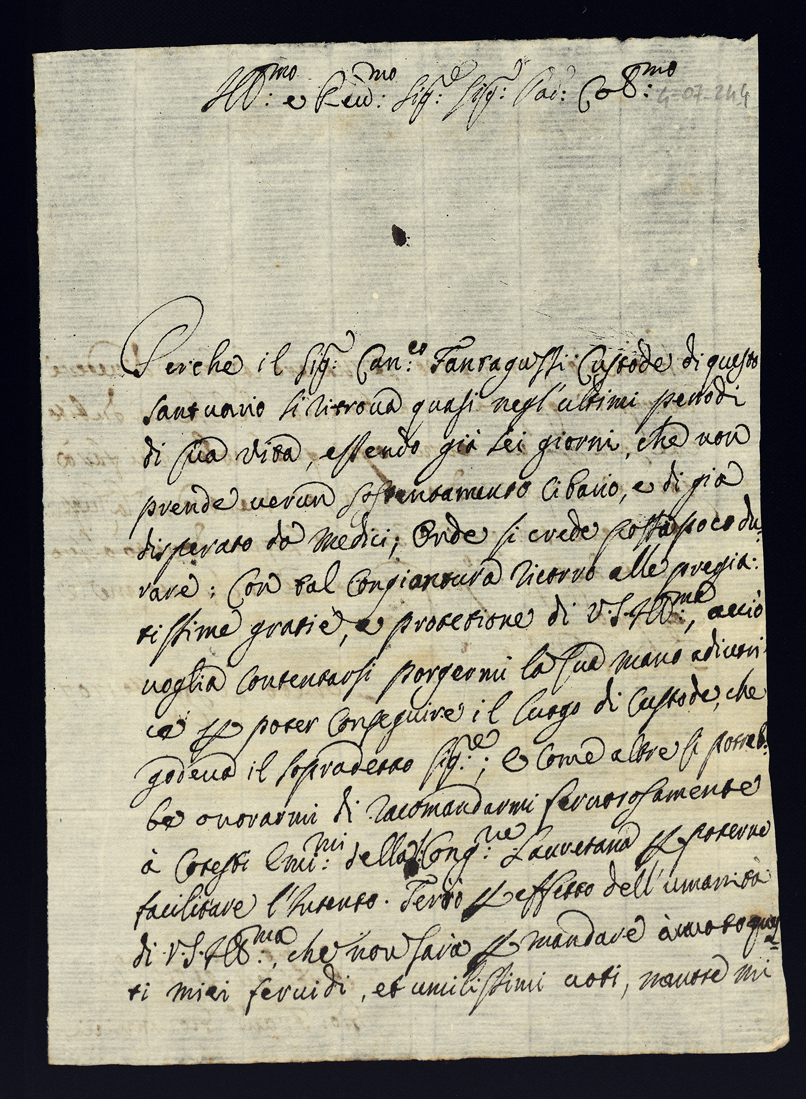 Ill:mo e Reu:mo Sig:e Sig:e Pad: Col:mo
4-07-244
Perche il Sig:e Can:co Fantaguzzi Custode di questo
Santuario si ritroua quasi negl'ultimi periodi
di sua vita, essendo già sei giorni, che non
prende uerun sostentamento cibario, e di già
disperato da Medici; Onde si crede possa poco du-
rare: Con tal congiontura ricorro alle pregia:
tissime gratie, e protetione di V.S.Ill:ma, acciò
uoglia contentarsi porgermi la sua mano adiutri
ce per poter conseguire il luogo di Custode, che
godeua il sopradetto Sig:e; e come altresì potreb:
be onorarmi di racomandarmi feruorosamente
à cotesti Emi:mi della Cong:ne Lauretana per poterne
facilitare l'Intento. Tento per effetto dell'umanità
di V.S.Ill:ma, che non sarà per mandare à uoto ques
ti miei feruidi, et umilissimi uoti, mentre mi